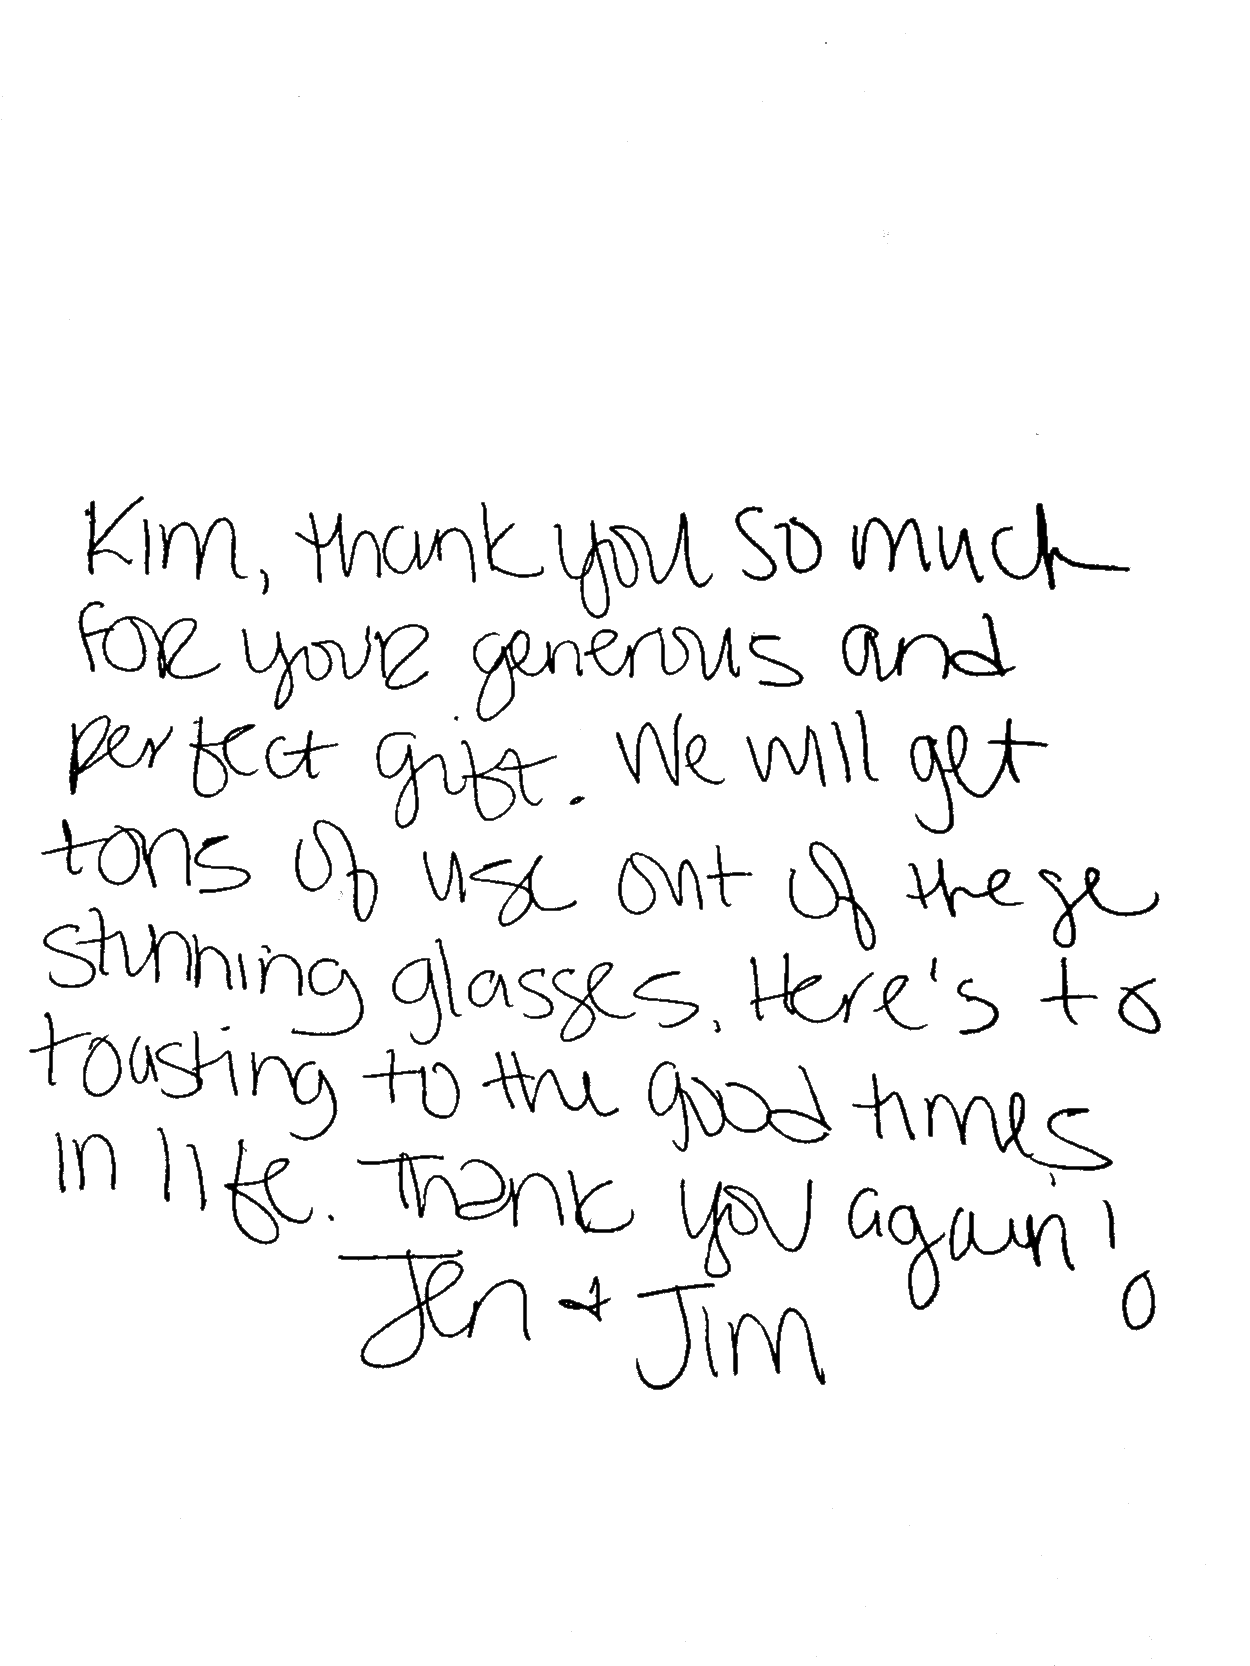 Kim, thank you so much
for your generous and
perfect gift. We will get
tons of use out of these
stunning glasses. Here's to
toasting to the good times
in life. Thank you again!
Jen + Jim